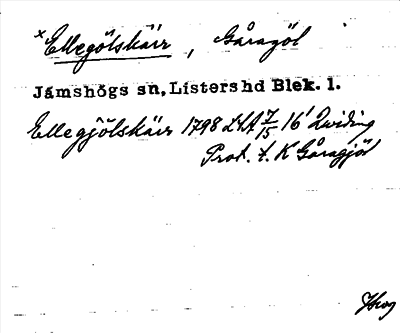 x Ellegölskärr, Gåragöl
Jämshögs sn, Listers hd Blek. l.
Ellegjölskärr 1798 LSA 7/15 16' Qwiding
Prot. t. K Gåragjöl